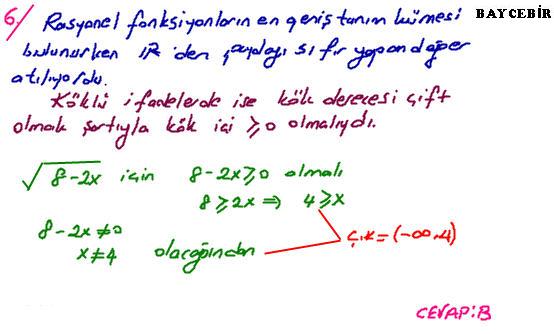 6./ Rasyonel fonksiyonların en geniş tanım kümesi
BAYCEBİR
bulunurken IR'den paydayı sıfır yapan değer
atılıyordu.
Köklü ifadelerde ise kök derecesi çift
olmak şartıyla kök içi ≥0 olmalıydı.
√8-2x için 8-2x≥0 olmalı
8≥2x ⇒ 4≥x
8-2x≠0
x≠4 olacağından
Ç.K=(-∞,4)
CEVAP:B